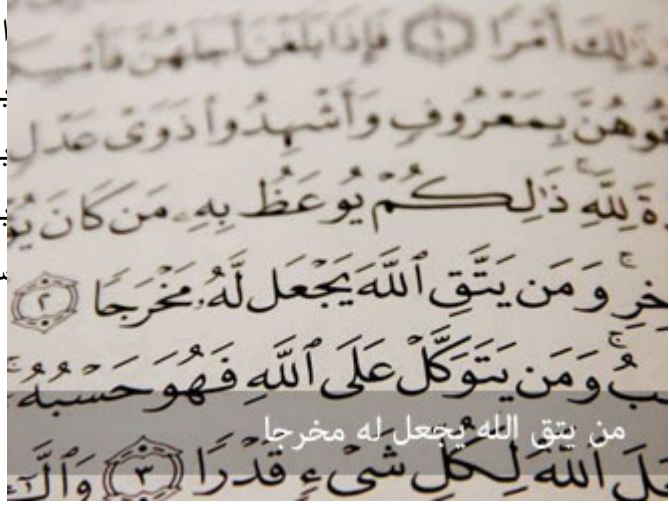 ذَٰلِكَ أَمْرًا ۝١ فَإِذَا بَلَغْنَ أَجَلَهُنَّ
بِمَعْرُوفٍ وَأَشْهِدُوا۟ ذَوَىْ عَدْلٍ
لِلَّهِ ذَٰلِكُمْ يُوعَظُ بِهِۦ مَن كَانَ
وَمَن يَتَّقِ ٱللَّهَ يَجْعَل لَّهُۥ مَخْرَجًا ۝٢
وَمَن يَتَوَكَّلْ عَلَى ٱللَّهِ فَهُوَ حَسْبُهُۥٓ
من يتق الله يجعل له مخرجا
ٱللَّهُ لِكُلِّ شَىْءٍ قَدْرًا ۝٣